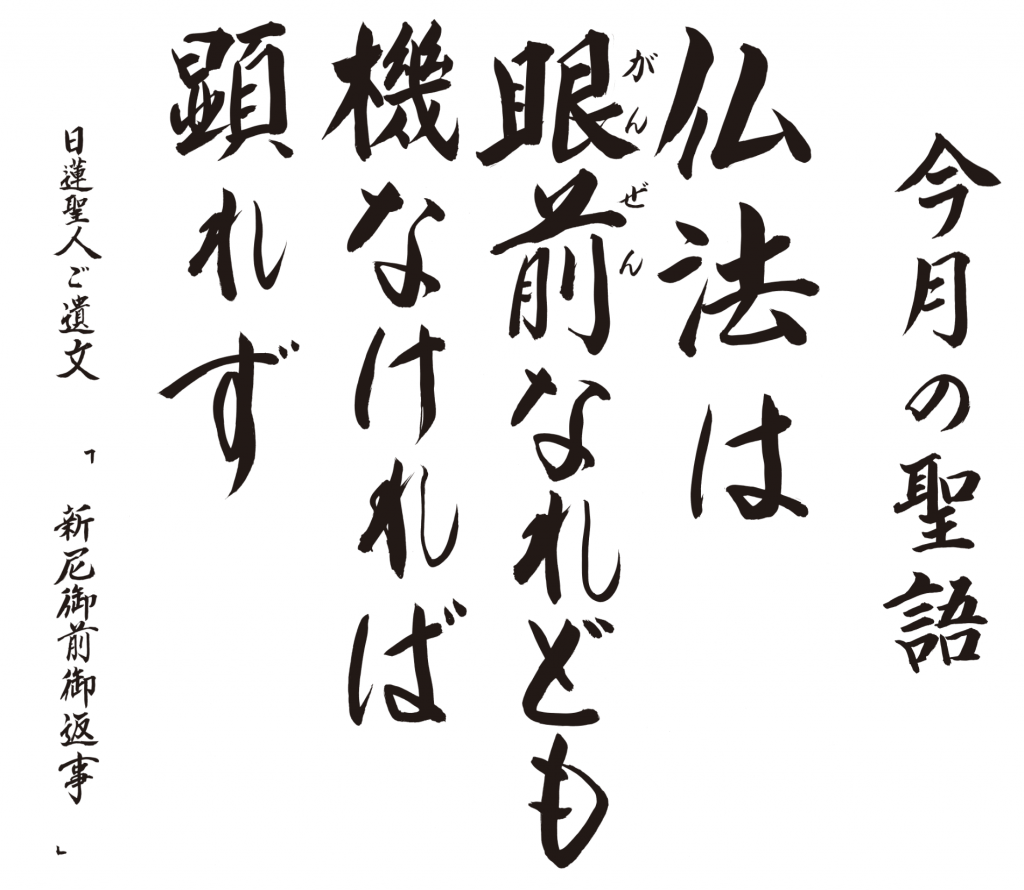 今月の聖語
仏法は
眼前なれども
がんぜん
機なければ
顕れず
日蓮聖人ご遺文「新尼御前御返事」